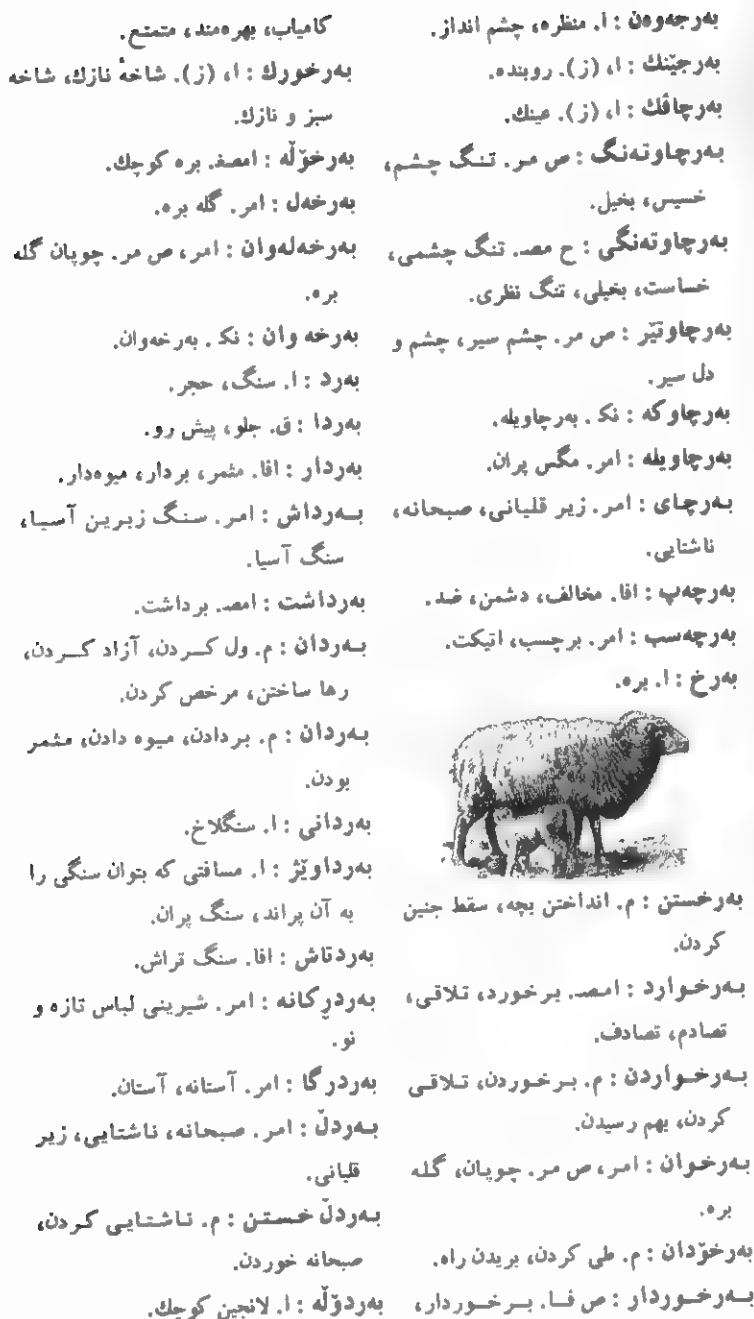 بەرجەوەن : ا. منظره، چشم انداز.
بەرجێنك : ا، (ز). روبنده.
بەرچاڤك : ا، (ز). عینك.
بەرچاوتەنگ : ص مر. تنگ چشم،
خسیس، بخیل.
بەرچاوتەنگی : ح مصـ. تنگ چشمی،
خساست، بخیلی، تنگ نظری.
بەرچاوتێر : ص مر. چشم سیر، چشم و
دل سیر.
بەرچاوکە : نکـ . بەرچاویلە.
بەرچاویلە : امر. مگس پران.
بەرچای : امر. زیر قلیانی، صبحانه،
ناشتایی.
بەرچەپ : افا. مخالف، دشمن، ضد.
بەرچەسب : امر. برچسب، اتیکت.
بەرخ : ا. بره.
بەرخستن : م. انداختن بچه، سقط جنین
کردن.
بەرخوارد : امصـ. برخورد، تلاقی،
تصادم، تصادف.
بەرخواردن : م. برخوردن، تلاقی
کردن، بهم رسیدن.
بەرخوان : امر، ص مر. چوپان، گله
بره.
بەرخۆدان : م. طی کردن، بریدن راه.
بەرخوردار : ص فا. برخوردار،
کامیاب، بهره‌مند، متمتع.
بەرخورك : ا، (ز). شاخهٔ نازك، شاخه
سبز و نازك.
بەرخۆڵە : امصغـ. بره کوچك.
بەرخەل : امر. گله بره.
بەرخەلەوان : امر، ص مر. چوپان گله
بره.
بەرخە وان : نکـ . بەرخەوان.
بەرد : ا. سنگ، حجر.
بەردا : ق. جلو، پیش رو.
بەردار : افا. مثمر، بردار، میوه‌دار.
بەرداش : امر. سنگ زیرین آسیا،
سنگ آسیا.
بەرداشت : امصـ. برداشت.
بەردان : م. ول کردن، آزاد کردن،
رها ساختن، مرخص کردن.
بەردان : م. بردادن، میوه دادن، مثمر
بودن.
بەردانی : ا. سنگلاخ.
بەرداوێژ : ا. مسافتی که بتوان سنگی را
به آن پراند، سنگ پران.
بەردتاش : افا. سنگ تراش.
بەردڕکانە : امر. شیرینی لباس تازه و
نو.
بەردرگا : امر. آستانه، آستان.
بەردڵ : امر. صبحانه، ناشتایی، زیر
قلیانی.
بەردڵ خستن : م. ناشتایی کردن،
صبحانه خوردن.
بەردۆڵە : ا. لانجین کوچك.